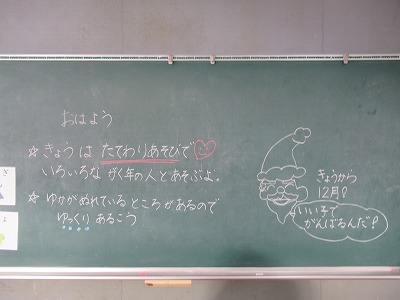 おはよう
☆ きょうは たてわりあそびで♡
いろいろな がく年の人とあそぶよ。
☆ ゆかがぬれているところがあるので
ゆっくり あるこう
きょうから
12月!
いい子で
がんばるんだ!